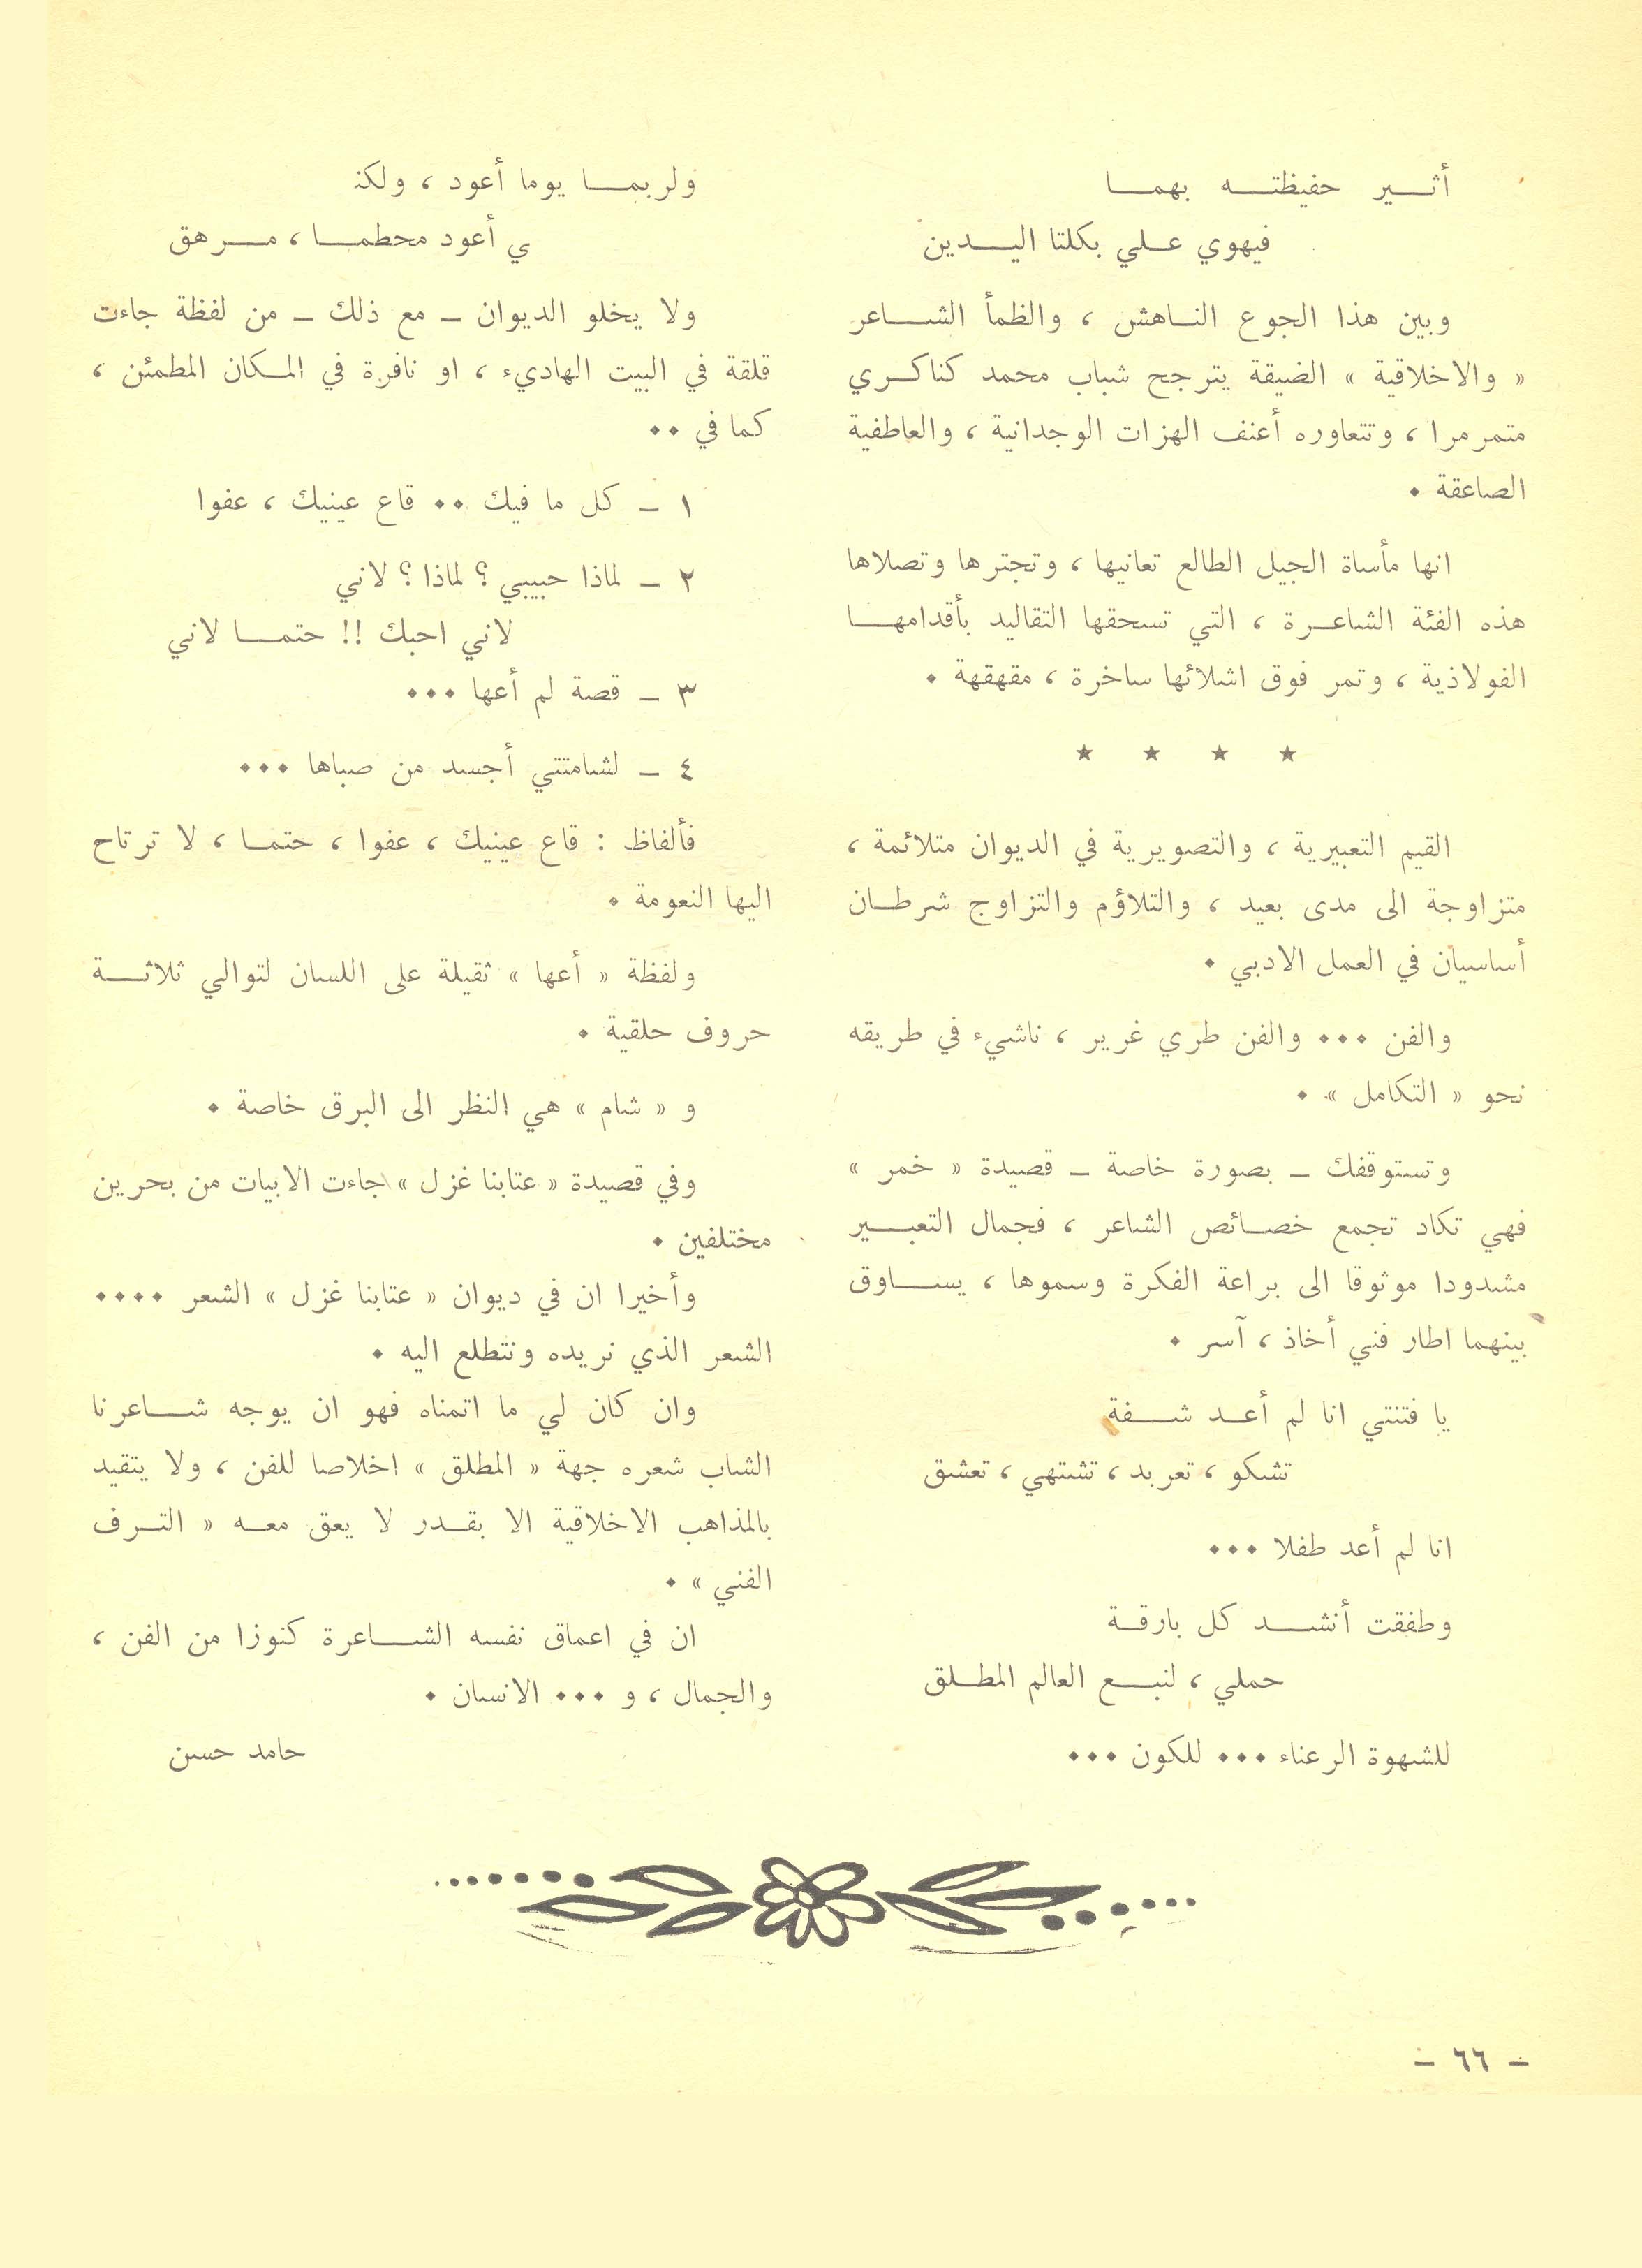 أثير حفيظته بهما
فيهوي علي بكلتا اليدين
وبين هذا الجوع الناهش ، والظمأ الشاعر
« والاخلاقية » الضيقة يترجح شباب محمد كناكري
متمرمرا ، وتتعاوره أعنف الهزات الوجدانية ، والعاطفية
الصاعقة .
انها مأساة الجيل الطالع تعانيها ، وتجترها وتصلاها
هذه الفئة الشاعرة ، التي تسحقها التقاليد بأقدامها
الفولاذية ، وتمر فوق اشلائها ساخرة ، مقهقهة .
★ ★ ★ ★
القيم التعبيرية ، والتصويرية في الديوان متلائمة ،
متزاوجة الى مدى بعيد ، والتلاؤم والتزاوج شرطان
أساسيان في العمل الادبي .
والفن ... والفن طري غرير ، ناشيء في طريقه
نحو « التكامل » .
وتستوقفك – بصورة خاصة – قصيدة « خمر »
فهي تكاد تجمع خصائص الشاعر ، فجمال التعبير
مشدودا موثوقا الى براعة الفكرة وسموها ، يساوق
بينهما اطار فني أخاذ ، آسر .
يا فتنتي انا لم أعد شفة
تشكو ، تعربد ، تشتهي ، تعشق
انا لم أعد طفلا ...
وطفقت أنشد كل بارقة
حملي ، لنبع العالم المطلق
للشهوة الرعناء ... للكون ...
ولربما يوما أعود ، ولكنـ
ـي أعود محطما ، مرهق
ولا يخلو الديوان – مع ذلك – من لفظة جاءت
قلقة في البيت الهاديء ، او نافرة في المكان المطمئن ،
كما في ..
١ – كل ما فيك .. قاع عينيك ، عفوا
٢ – لماذا حبيبي ؟ لماذا ؟ لاني
لاني احبك !! حتما لاني
٣ – قصة لم أعها ...
٤ – لشامتتي أجسد من صباها ...
فألفاظ : قاع عينيك ، عفوا ، حتما ، لا ترتاح
اليها النعومة .
ولفظة « أعها » ثقيلة على اللسان لتوالي ثلاثة
حروف حلقية .
و « شام » هي النظر الى البرق خاصة .
وفي قصيدة « عتابنا غزل » جاءت الابيات من بحرين
مختلفين .
وأخيرا ان في ديوان « عتابنا غزل » الشعر ....
الشعر الذي نريده ونتطلع اليه .
وان كان لي ما اتمناه فهو ان يوجه شاعرنا
الشاب شعره جهة « المطلق » اخلاصا للفن ، ولا يتقيد
بالمذاهب الاخلاقية الا بقدر لا يعق معه « الترف
الفني » .
ان في اعماق نفسه الشاعرة كنوزا من الفن ،
والجمال ، و ... الانسان .
حامد حسن
– ٦٦ –